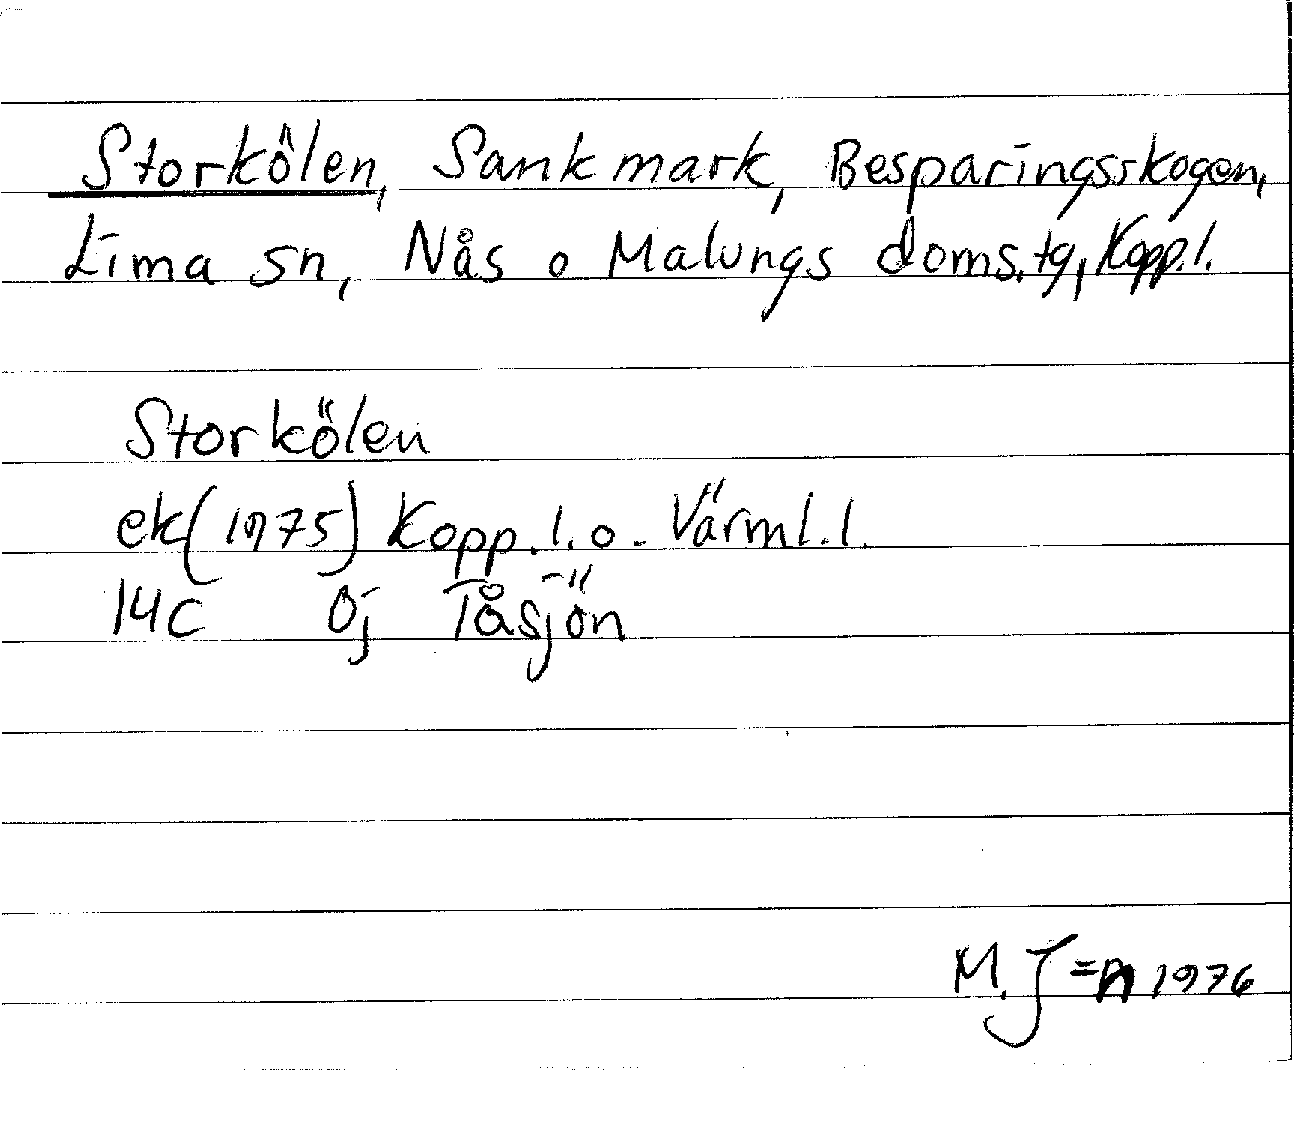 Storkölen, Sankmark, Besparingsskogen,
Lima sn, Nås o Malungs doms.tg, Kopp.l.
Storkölen
ek(1975) Kopp.l.o. Värml.l.
14c Öj Tåsjön
M.J=n 1976